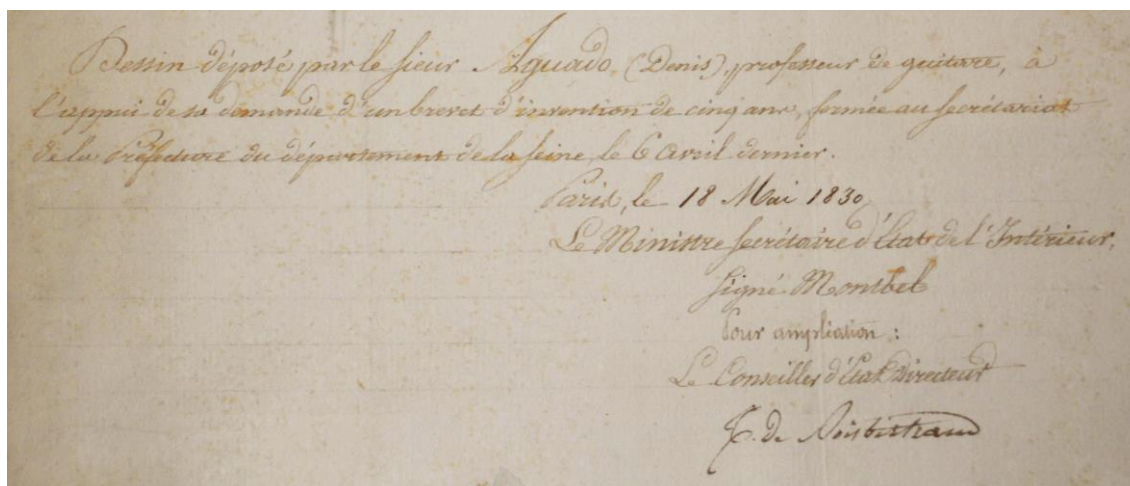 Dessin déposé par le sieur Aguado (Denis), professeur de guitare, à
l'appui de sa demande d'un brevet d'invention de cinq ans, formée au secrétariat
de la Préfecture du département de la Seine, le 6 avril dernier.
Paris, le 18 Mai 1830,
Le Ministre Secrétaire d'État de l'Intérieur,
signé Montbel
Pour ampliation :
Le Conseiller d'État Directeur
T. de Boisbertrand